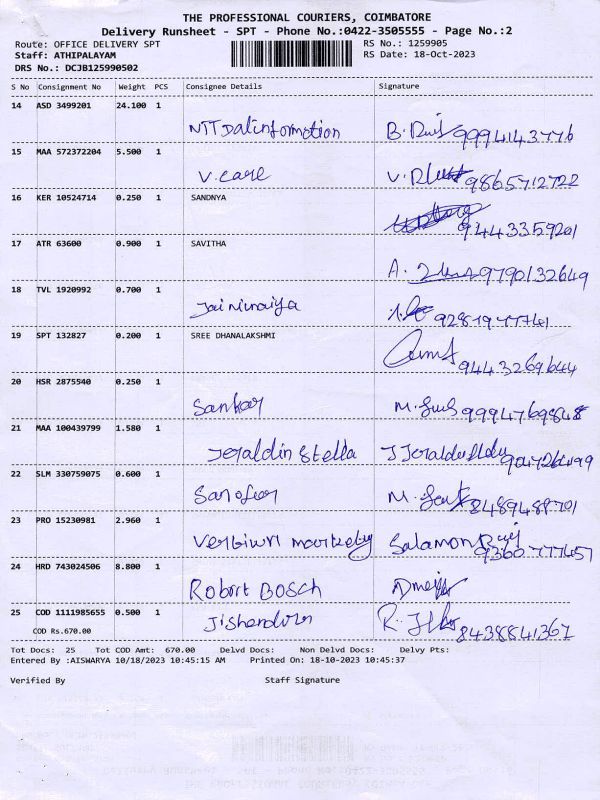 THE PROFESSIONAL COURIERS, COIMBATORE
Delivery Runsheet - SPT - Phone No.:0422-3505555 - Page No.:2
Route: OFFICE DELIVERY SPT RS No.: 1259905
Staff: ATHIPALAYAM RS Date: 18-Oct-2023
DRS No.: DCJB125990502
S No Consignment No Weight PCS Consignee Details Signature
14 ASD 3499201 24.100 1
B. 9994143776
15 MAA 572372204 5.500 1
V. care V. 9865712722
16 KER 10524714 0.250 1 SANDNYA
9443359201
17 ATR 63600 0.900 1 SAVITHA
A. 9790132649
18 TVL 1920992 0.700 1
19 SPT 132827 0.200 1 SREE DHANALAKSHMI
9443269644
20 HSR 2875540 0.250 1
Sankar M.
21 MAA 100439799 1.580 1
Jeraldin Stella J
22 SLM 330759075 0.600 1
M. 8489489701
23 PRO 15230981 2.960 1
Salamon
9360777457
24 HRD 743024506 8.800 1
Robert BOSCH
25 COD 1111985655 0.500 1
R. 8438841367
COD Rs.670.00
Tot Docs: 25 Tot COD Amt: 670.00 Delvd Docs: Non Delvd Docs: Delvy Pts:
Entered By :AISWARYA 10/18/2023 10:45:15 AM Printed On: 18-10-2023 10:45:37
Verified By Staff Signature